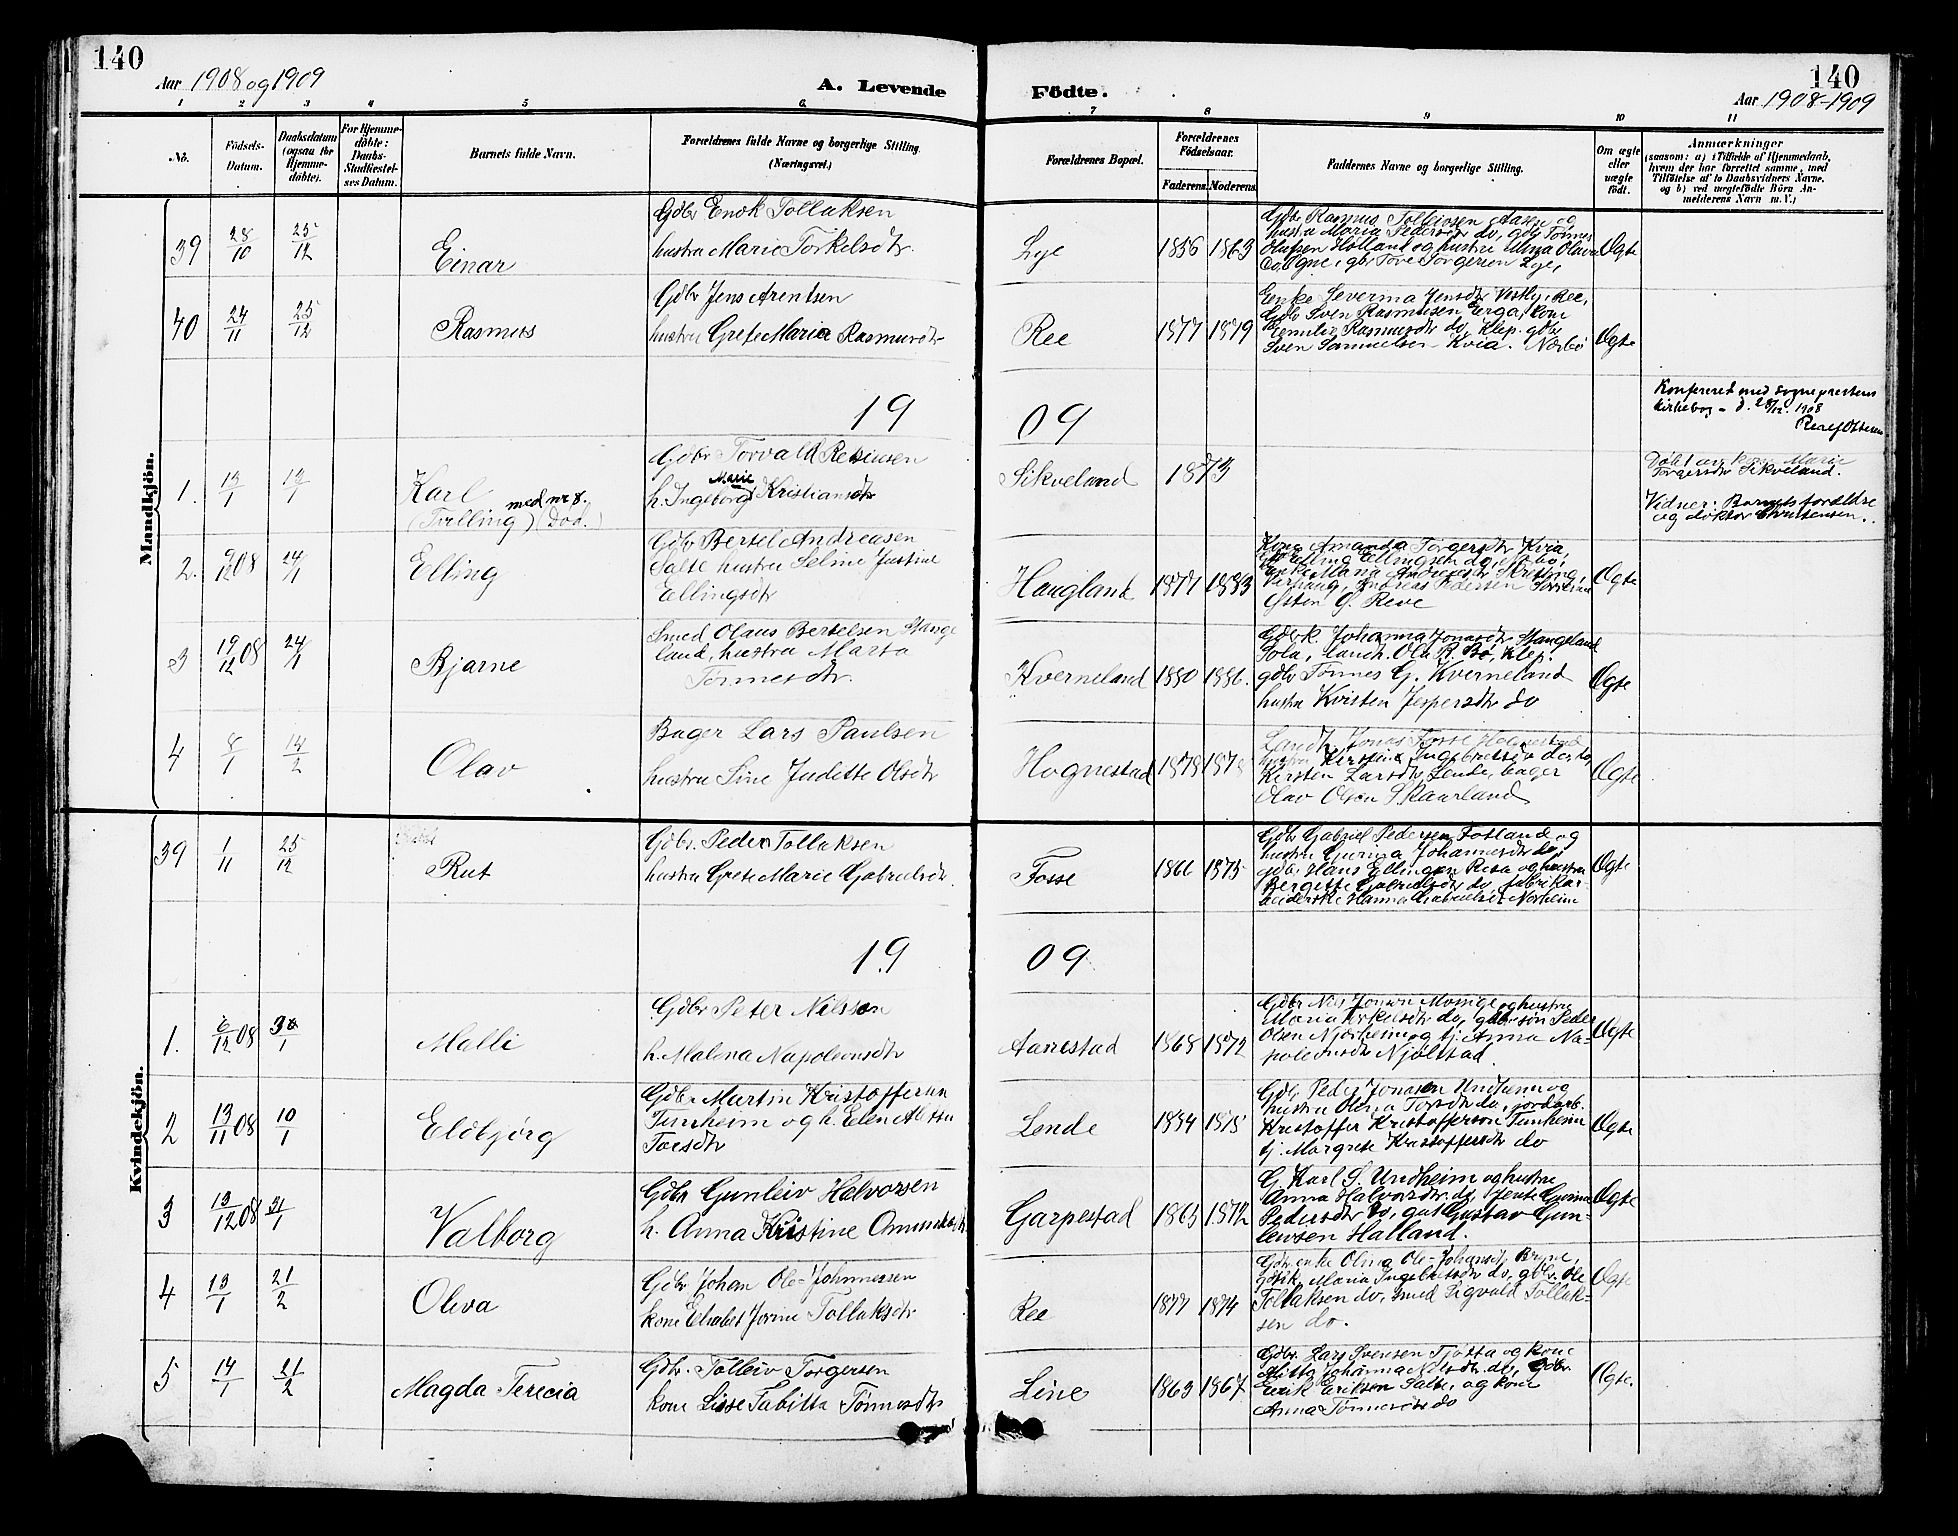 140
Aar 1908 og 1909
A. Levende
Fødte.
140
Aar 1908-1909
1 2 3 4 5 6. 7 8 9 10 11
No.
Fødsels-
Datum.
Daabsdatum
(ogsaa for
Hjemme-
døbte).
For Hjemme-
døbte:
Daabs-
Stadfæstel-
ses Datum.
Barnets fulde Navn.
Forældrenes fulde Navne og borgerlige Stilling.
(Næringsvei.)
Forældrenes Bopæl.
Forældrenes
Fødselsaar.
Faderens. Moderens.
Faddernes Navne og borgerlige Stilling.
Om ægte
eller
uægte
født.
Anmærkninger
(saasom: a) i Tilfælde af Hjemmedaab,
hvem der har forrettet samme, med
Tilføielse af to Daabsvidners Navne,
og b) ved uægtefødte Børn An-
melderens Navn m. V.)
Mandkjön.
39 28/10 25/12 Einar
Gdbr Enok Tollaksen
hustru Marie Torkelsdtr.
Lye 1856 1863
Gdbr Rasmus Tolleivsen Aasen og
hustru Maria Pedersdtr do, gdb Tønnes
Olufsen Holland og hustru Olava
do, Ogne, gbr Tore Torgersen Lye,
Ægte
40 24/11 25/12 Rasmus
Gdbr Jens Arentsen
hustru Grete Maria Rasmusdtr
Ree 1877 1879
Enke Severina Jensdtr Vestly, Ree,
Gdbr Sven Rasmussen Erga, kone
Rasmusdtr do, Klep. gdbr
Sven Samuelsen Kvia. Nærbø
Ægte
1909
Konfereret med sogneprestens
kirkebog - d. 28/12. 1908
1. 13/1 13/1 Karl
(Tvilling med nr 8.) (Død.)
Gdbr Torvald
h. Ingeborg Marie Kristiansdtr
Sikveland 1873
Døbt av kone Marie
Torgersdtr Sikveland.
Vidner: Barnets forældre
og doktor Christensen.
2. 9/12 08 24/1 Elling
Gdbr Bertel Andreasen
Salte hustru Seline Justine
Ellingsdtr
Haugland 1877 1883
Kone Amanda Torgersdtr Kvia,
Elling Ellingsen do, Nærbø,
Enke Maria Andreasdtr
Varhaug, Andreas
Østen G. Reve
Ægte
3 19/12 08 24/1 Bjarne
Smed Olaus Bertelsen Stange
land, hustru Marta
Tønnesdtr.
Kverneland 1880 1886.
Gdbrk. Johanna Jonasdtr Stangeland
Sola, landh. Ola R. Bø, Klep.
gdbr Tønnes G. Kverneland
hustru Kristen Jespersdtr do
Ægte
4 8/1 14/2 Olav
Bager Lars Paulsen
hustru Sine Juditte Olsdtr
Hognestad 1878 1878
Landh. Jonas Fosse Hognestad
hustru Kirstine Ingebretsen
Kirsten Larsdtr Lende, bager
Olav Olsen Skaarland
Ægte
Kvindekjön.
39 1/11 25/12 Rut
Gdbr. Peder Tollaksen
hustru Grete Marie Gabrielsdtr.
Fosse 1866 1875
Gdbr Gabriel Pedersen Fotland og
hustru Gurina Johannesdtr do,
gdbr Hans Ellingsen Risa og hustru
Bergitte Gabrielsdtr do, fabrikar-
beiderske Hanna Gabrielsdtr Norheim
Ægte
1909
1. 6/12 08 30/1 Malli
Gdbr Peter Nilsson
h. Malena Napoleonsdtr
Aanestad 1868 1872
Gdbr Nils Jonson Mossige og hustru
Maria Torkelsdtr do, gdbr søn Peder
Olsen Njærheim og tj. Anna Na-
poleonsdtr Njølstad
Ægte
2 13/11 08 10/1 Eldbjørg
Gdbr. Martin Kristoffersen
Tunheim og h. Elen
Toresdtr
Lende 1884 1878
Gdbr Peder Jonassen Undheim og
hustru Olena Toresdtr do, jordarb.
Kristoffer Kristofferson Tunheim
tj. Margrete Kristoffersdtr do
Ægte
3 13/12 08 31/1 Valborg
Gdbr Gunleiv Halvorsen
h. Anna Kristine Omundsdtr
Garpestad 1865 1872
G. Karl S. Undheim og hustru
Anna Halvorsdtr do, Jente Gurina
Pedersdtr do, gut Gustav Gun-
leivsen Halland.
Ægte
4 13/1 21/2 Oleva
Gdbr Johan Ole-Johannessen
kone Elisabet Jorine Tollaksdtr
Ree 1877 1874
Gdbr enke Olina Ole-Johansdtr Bryne,
Maria Ingebretsdtr do, gdbr. Ole
Tollaksen do, smed Sigvald Tollak-
sen do.
Ægte
5 14/1 21/2 Magda Terecia
Gdbr. Tolleiv Torgersen
kone Lisse Tabitta Tønnesdtr
Line 1863 1867
Gdbr. Lars Svensen Tjøtta og kone
Mitta Johanna Nilsdtr do, Gdbr.
Eirik Eriksen Salte, og kone
Anna Tønnesdtr do
Ægte.